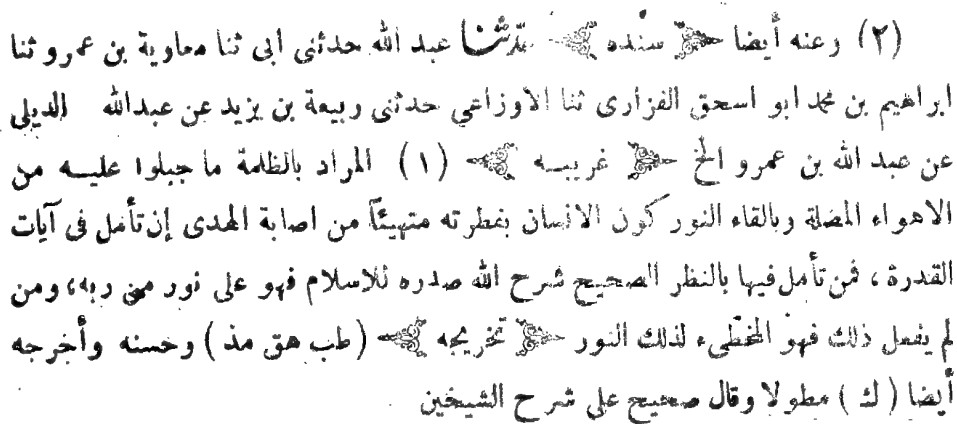 (٢) وعنه أيضا ﴿ سنده ﴾ حدّثنا عبد الله حدثنى ابى ثنا معاوية بن عمرو ثنا
ابراهيم بن محمد ابو اسحق الفزارى ثنا الاوزاعي حدثنى ربيعة بن يزيد عن عبدالله الديلى
عن عبد الله بن عمرو الخ ﴿ غريبـه ﴾ (١) المراد بالظلمة ما جبلوا عليـه من
الاهواء المضلة وبالقاء النور كون الانسان بفطرته متهيئاً من اصابة الهدى إن تأمل فى آيات
القدرة ، فمن تأمل فيها بالنظر الصحيح شرح الله صدره للاسلام فهو على نور من ربه، ومن
لم يفعل ذلك فهو المخطىء لذلك النور ﴿ تخريجه ﴾ (طب هق مذ) وحسنه وأخرجه
أيضا (ك) مطولا وقال صحيح على شرح الشيخين